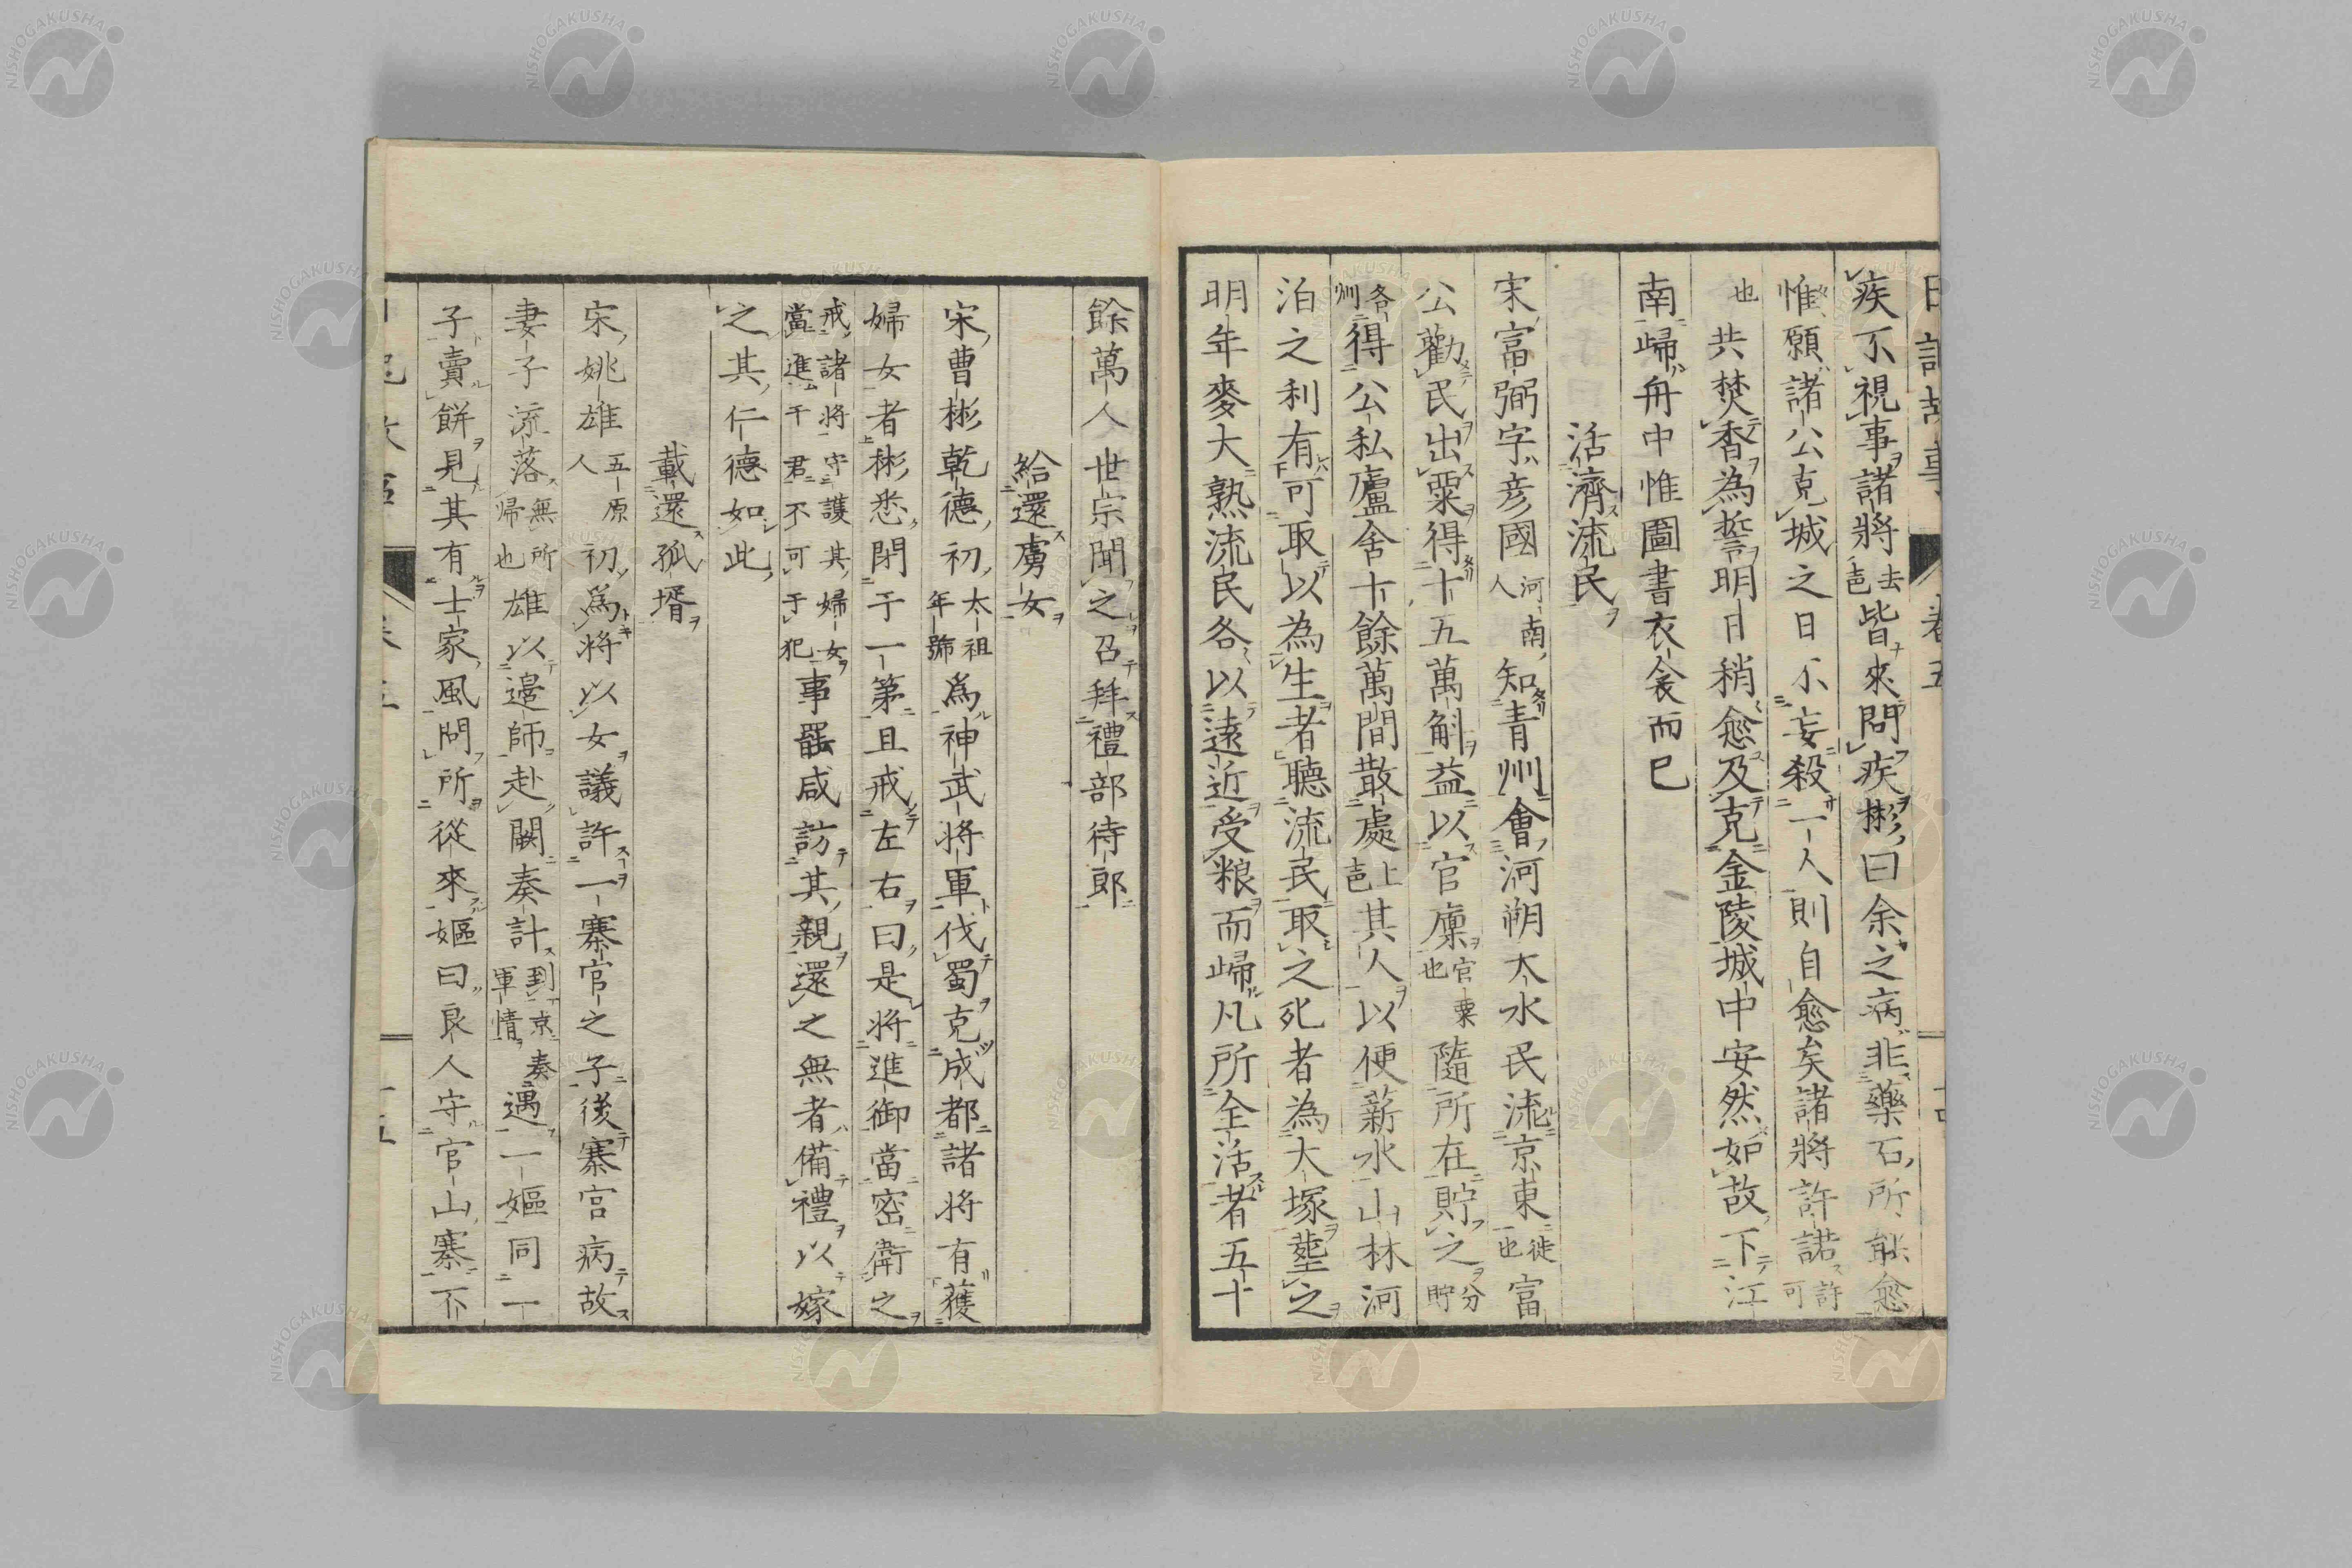 疾不視事諸將去邑皆來問疾彬曰余之病非藥石所能愈
惟願諸公克城之日不妄殺一人則自愈矣諸將許諾許可
也共焚香為誓明日稍愈及克金陵城中安然如故下江
南歸舟中惟圖書衣衾而已
活濟流民
宋富弼字彦國河南人知青州會河朔大水民流京東徙也富
公勸民出粟得十五萬斛益以官廩官粟也隨所在貯之分貯
各州得公私廬舍十餘萬間散處上邑其人以便薪水山林河
泊之利有可取以為生者聽流民取之死者為大塚塟之
明年麥大熟流民各以遠近受粮而歸凡所全活者五十
餘萬人世宗聞之召拜禮部待郎
給還虜女
宋曹彬乾德初太祖年號為神武將軍伐蜀克成都諸將有獲
婦女者彬悉閉于一第且戒左右曰是將進御當密衛之
戒諸將守護其婦女當進于君不可于犯事罷咸訪其親還之無者備禮以嫁
之其仁德如此
載還孤壻
宋姚雄五原人初為將以女議許一寨官之子後寨官病故
妻子流落無所歸也雄以邊師赴闕奏計到京奏軍情遇一嫗同一
子賣餅見其有士家風問所從來嫗曰良人守官山寨不